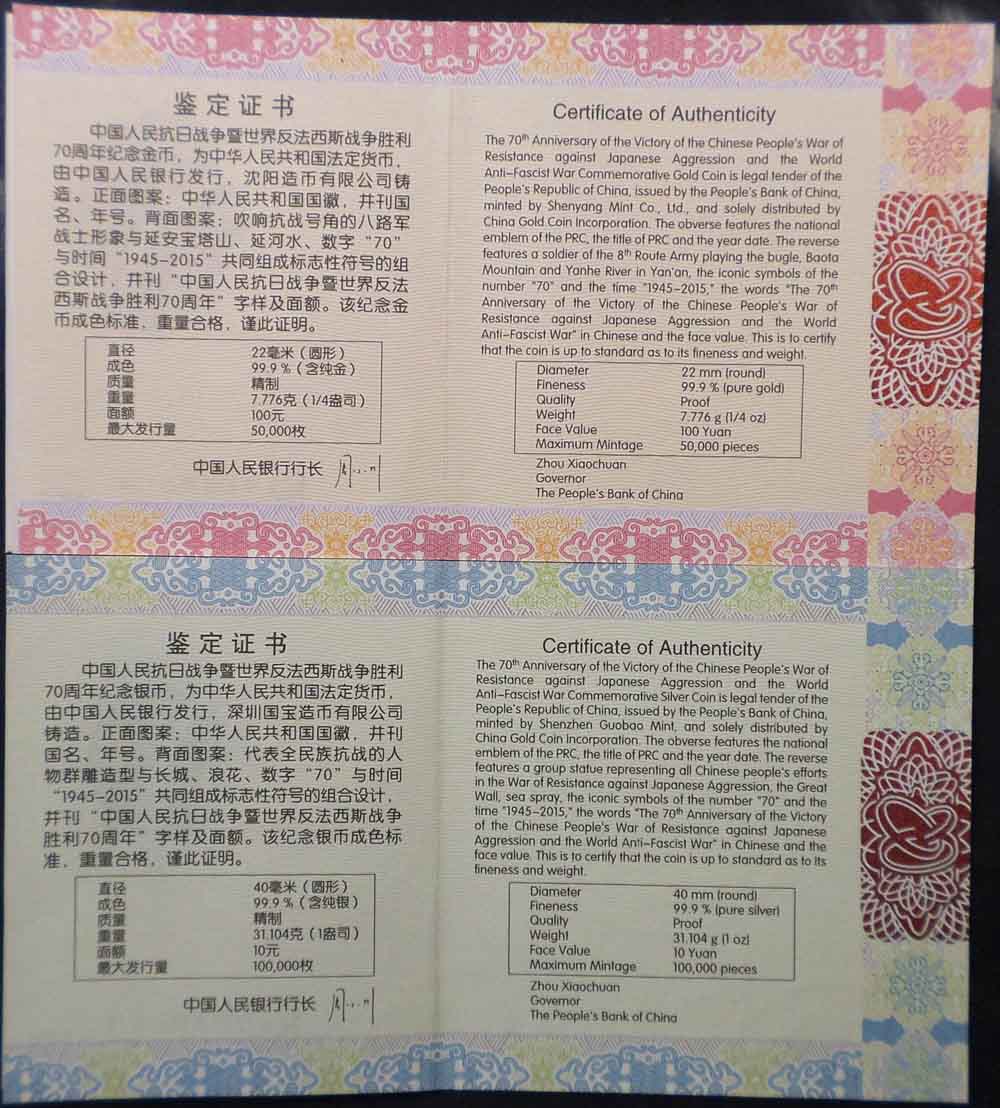 鉴定证书
中国人民抗日战争暨世界反法西斯战争胜利
70周年纪念金币，为中华人民共和国法定货币，
由中国人民银行发行，沈阳造币有限公司铸
造。正面图案：中华人民共和国国徽，并刊国
名、年号。背面图案：吹响抗战号角的八路军
战士形象与延安宝塔山、延河水、数字“70”
与时间“1945-2015”共同组成标志性符号的组
合设计，并刊“中国人民抗日战争暨世界反法
西斯战争胜利70周年”字样及面额。该纪念金
币成色标准，重量合格，谨此证明。
直径 22毫米（圆形）
成色 99.9 %（含纯金）
质量 精制
重量 7.776克（1/4盎司）
面额 100元
最大发行量 50,000枚
中国人民银行行长
Certificate of Authenticity
The 70th Anniversary of the Victory of the Chinese People's War of
Resistance against Japanese Aggression and the World
Anti-Fascist War Commemorative Gold Coin is legal tender of the
People's Republic of China, issued by the People's Bank of China,
minted by Shenyang Mint Co., Ltd., and solely distributed by
China Gold Coin Incorporation. The obverse features the national
emblem of the PRC, the title of PRC and the year date. The reverse
features a soldier of the 8th Route Army playing the bugle, Baota
Mountain and Yanhe River in Yan'an, the iconic symbols of the
number "70" and the time "1945-2015," the words "The 70th
Anniversary of the Victory of the Chinese People's War of
Resistance against Japanese Aggression and the World
Anti-Fascist War" in Chinese and the face value. This is to certify
that the coin is up to standard as to its fineness and weight.
Diameter 22 mm (round)
Fineness 99.9 % (pure gold)
Quality Proof
Weight 7.776 g (1/4 oz)
Face Value 100 Yuan
Maximum Mintage 50,000 pieces
Zhou Xiaochuan
Governor
The People's Bank of China
鉴定证书
中国人民抗日战争暨世界反法西斯战争胜利
70周年纪念银币，为中华人民共和国法定货币，
由中国人民银行发行，深圳国宝造币有限公司
铸造。正面图案：中华人民共和国国徽，并刊
国名、年号。背面图案：代表全民族抗战的人
物群雕造型与长城、浪花、数字“70”与时间
“1945-2015”共同组成标志性符号的组合设计，
并刊“中国人民抗日战争暨世界反法西斯战争
胜利70周年”字样及面额。该纪念银币成色标
准，重量合格，谨此证明。
直径 40毫米（圆形）
成色 99.9 %（含纯银）
质量 精制
重量 31.104克（1盎司）
面额 10元
最大发行量 100,000枚
中国人民银行行长
Certificate of Authenticity
The 70th Anniversary of the Victory of the Chinese People's War of
Resistance against Japanese Aggression and the World
Anti-Fascist War Commemorative Silver Coin is legal tender of the
People's Republic of China, issued by the People's Bank of China,
minted by Shenzhen Guobao Mint, and solely distributed by
China Gold Coin Incorporation. The obverse features the national
emblem of the PRC, the title of PRC and the year date. The reverse
features a group statue representing all Chinese people's efforts
in the War of Resistance against Japanese Aggression, the Great
Wall, sea spray, the iconic symbols of the number "70" and the
time "1945-2015," the words "The 70th Anniversary of the Victory
of the Chinese People's War of Resistance against Japanese
Aggression and the World Anti-Fascist War" in Chinese and the
face value. This is to certify that the coin is up to standard as to its
fineness and weight.
Diameter 40 mm (round)
Fineness 99.9 % (pure silver)
Quality Proof
Weight 31.104 g (1 oz)
Face Value 10 Yuan
Maximum Mintage 100,000 pieces
Zhou Xiaochuan
Governor
The People's Bank of China